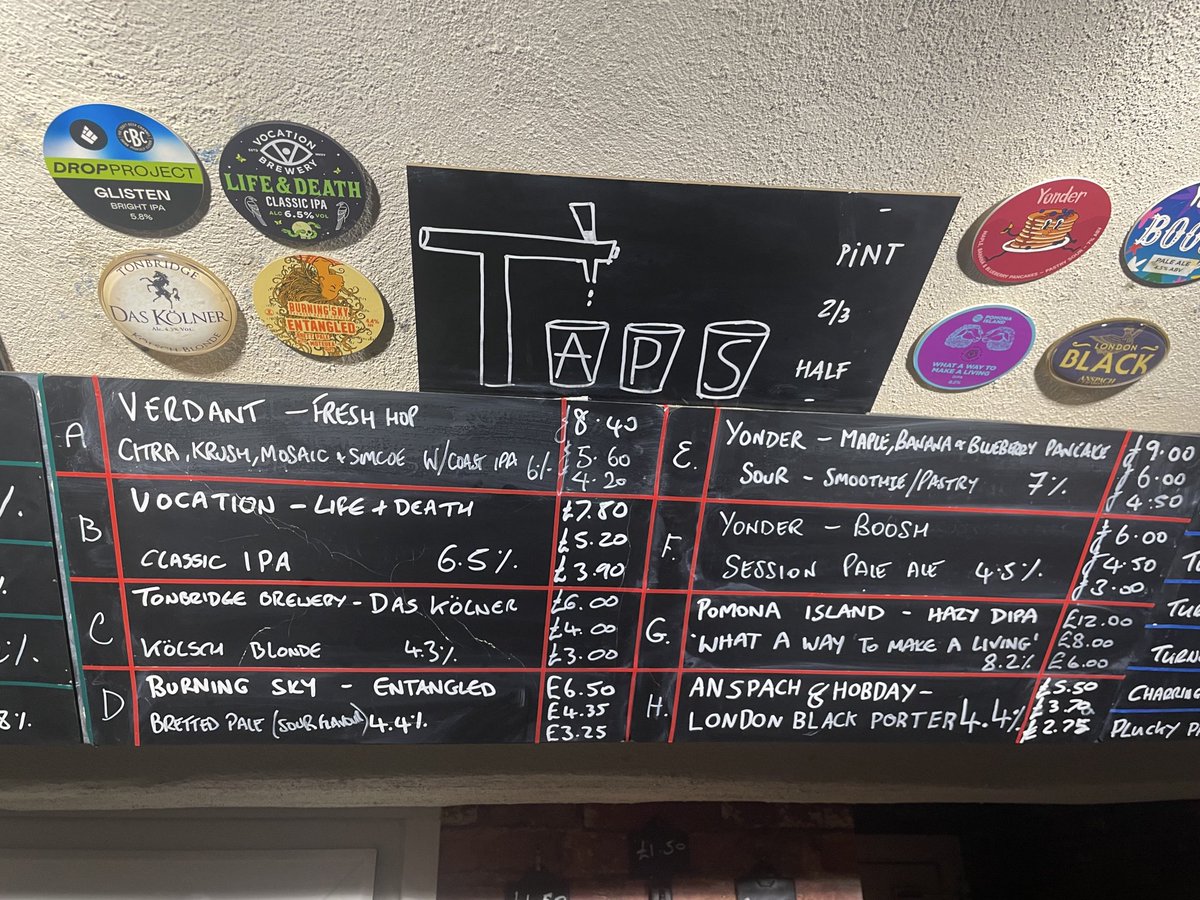 DROPPROJECT
CBC
GLISTEN
BRIGHT IPA
5.8%
VOCATION
BREWERY
LIFE & DEATH
CLASSIC IPA
ALC 6.5% VOL
TONBRIDGE
DAS KÖLNER
ALC. 4.3% VOL.
KÖLSCH BLONDE
BURNING SKY
ENTANGLED
4.4%
TAPS
PINT
2/3
HALF
Yonder
MAPLE, BANANA & BLUEBERRY PANCAKES - PASTRY SOUR - 7% ABV
BOO
PALE ALE
4.5% ABV
POMONA
ISLAND
WHAT A WAY TO
MAKE A LIVING
LONDON
BLACK
ANSPACH
A
VERDANT - FRESH HOP
£8.40
CITRA, KRUSH, MOSAIC & SIMCOE W/COAST IPA 6%
£5.60
4.20
B
VOCATION - LIFE + DEATH
£7.80
£5.20
CLASSIC IPA 6.5%
£3.90
C
TONBRIDGE BREWERY - DAS KÖLNER
£6.00
£4.00
KÖLSCH BLONDE 4.3%
£3.00
D
BURNING SKY - ENTANGLED
£6.50
£4.35
BRETTED PALE (SOUR FLAVOUR) 4.4%
£3.25
E.
YONDER - MAPLE, BANANA & BLUEBERRY PANCAKE
£9.00
SOUR - SMOOTHIE/PASTRY 7%
£6.00
£4.50
F.
YONDER - BOOSH
£6.00
SESSION PALE ALE 4.5%
£4.50
£3.00
G.
POMONA ISLAND - HAZY DIPA
£12.00
'WHAT A WAY TO MAKE A LIVING'
£8.00
8.2%
£6.00
H.
ANSPACH & HOBDAY-
£5.50
LONDON BLACK PORTER 4.4%
£3.70
£2.75
TURN
CHARRING
PLUCKY P
8%
£1.50